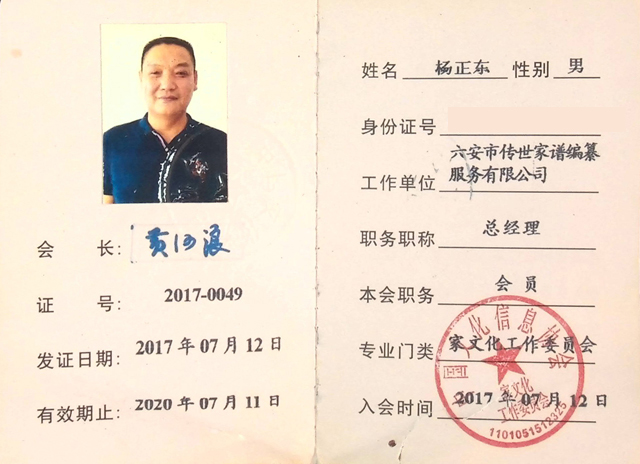 会 长：黄河浪
证 号：2017-0049
发证日期：2017 年 07 月 12 日
有效期止：2020 年 07 月 11 日
姓名 杨正东 性别 男
身份证号
六安市传世家谱编纂
工作单位 服务有限公司
职务职称 总经理
本会职务 会员
专业门类 家文化工作委员会
入会时间 2017 年 07 月 12 日
文化信息协会
家文化
工作委员会
1101051512325